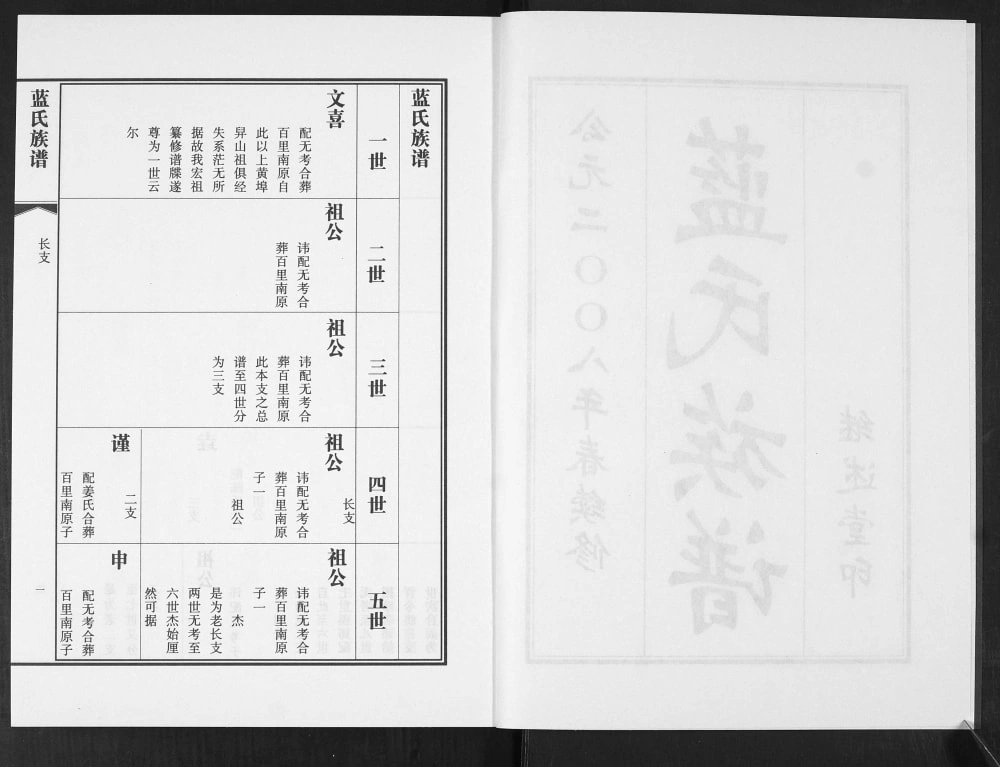 蓝氏族谱
一世
文喜
配无考合葬
百里南原自
此以上黄埠
舁山祖俱经
失系茫无所
据故我宏祖
纂修谱牒遂
尊为一世云
尔
二世
祖公
讳配无考合
葬百里南原
三世
祖公
讳配无考合
葬百里南原
此本支之总
谱至四世分
为三支
四世
长支
祖公
讳配无考合
葬百里南原
子一
祖公
二支
谨
配姜氏合葬
百里南原子
五世
祖公
讳配无考合
葬百里南原
子一
杰
是为老长支
两世无考至
六世杰始厘
然可据
申
配无考合葬
百里南原子
蓝氏族谱
长支
一
继述堂印
蓝氏族谱
公元二〇〇八年春续修